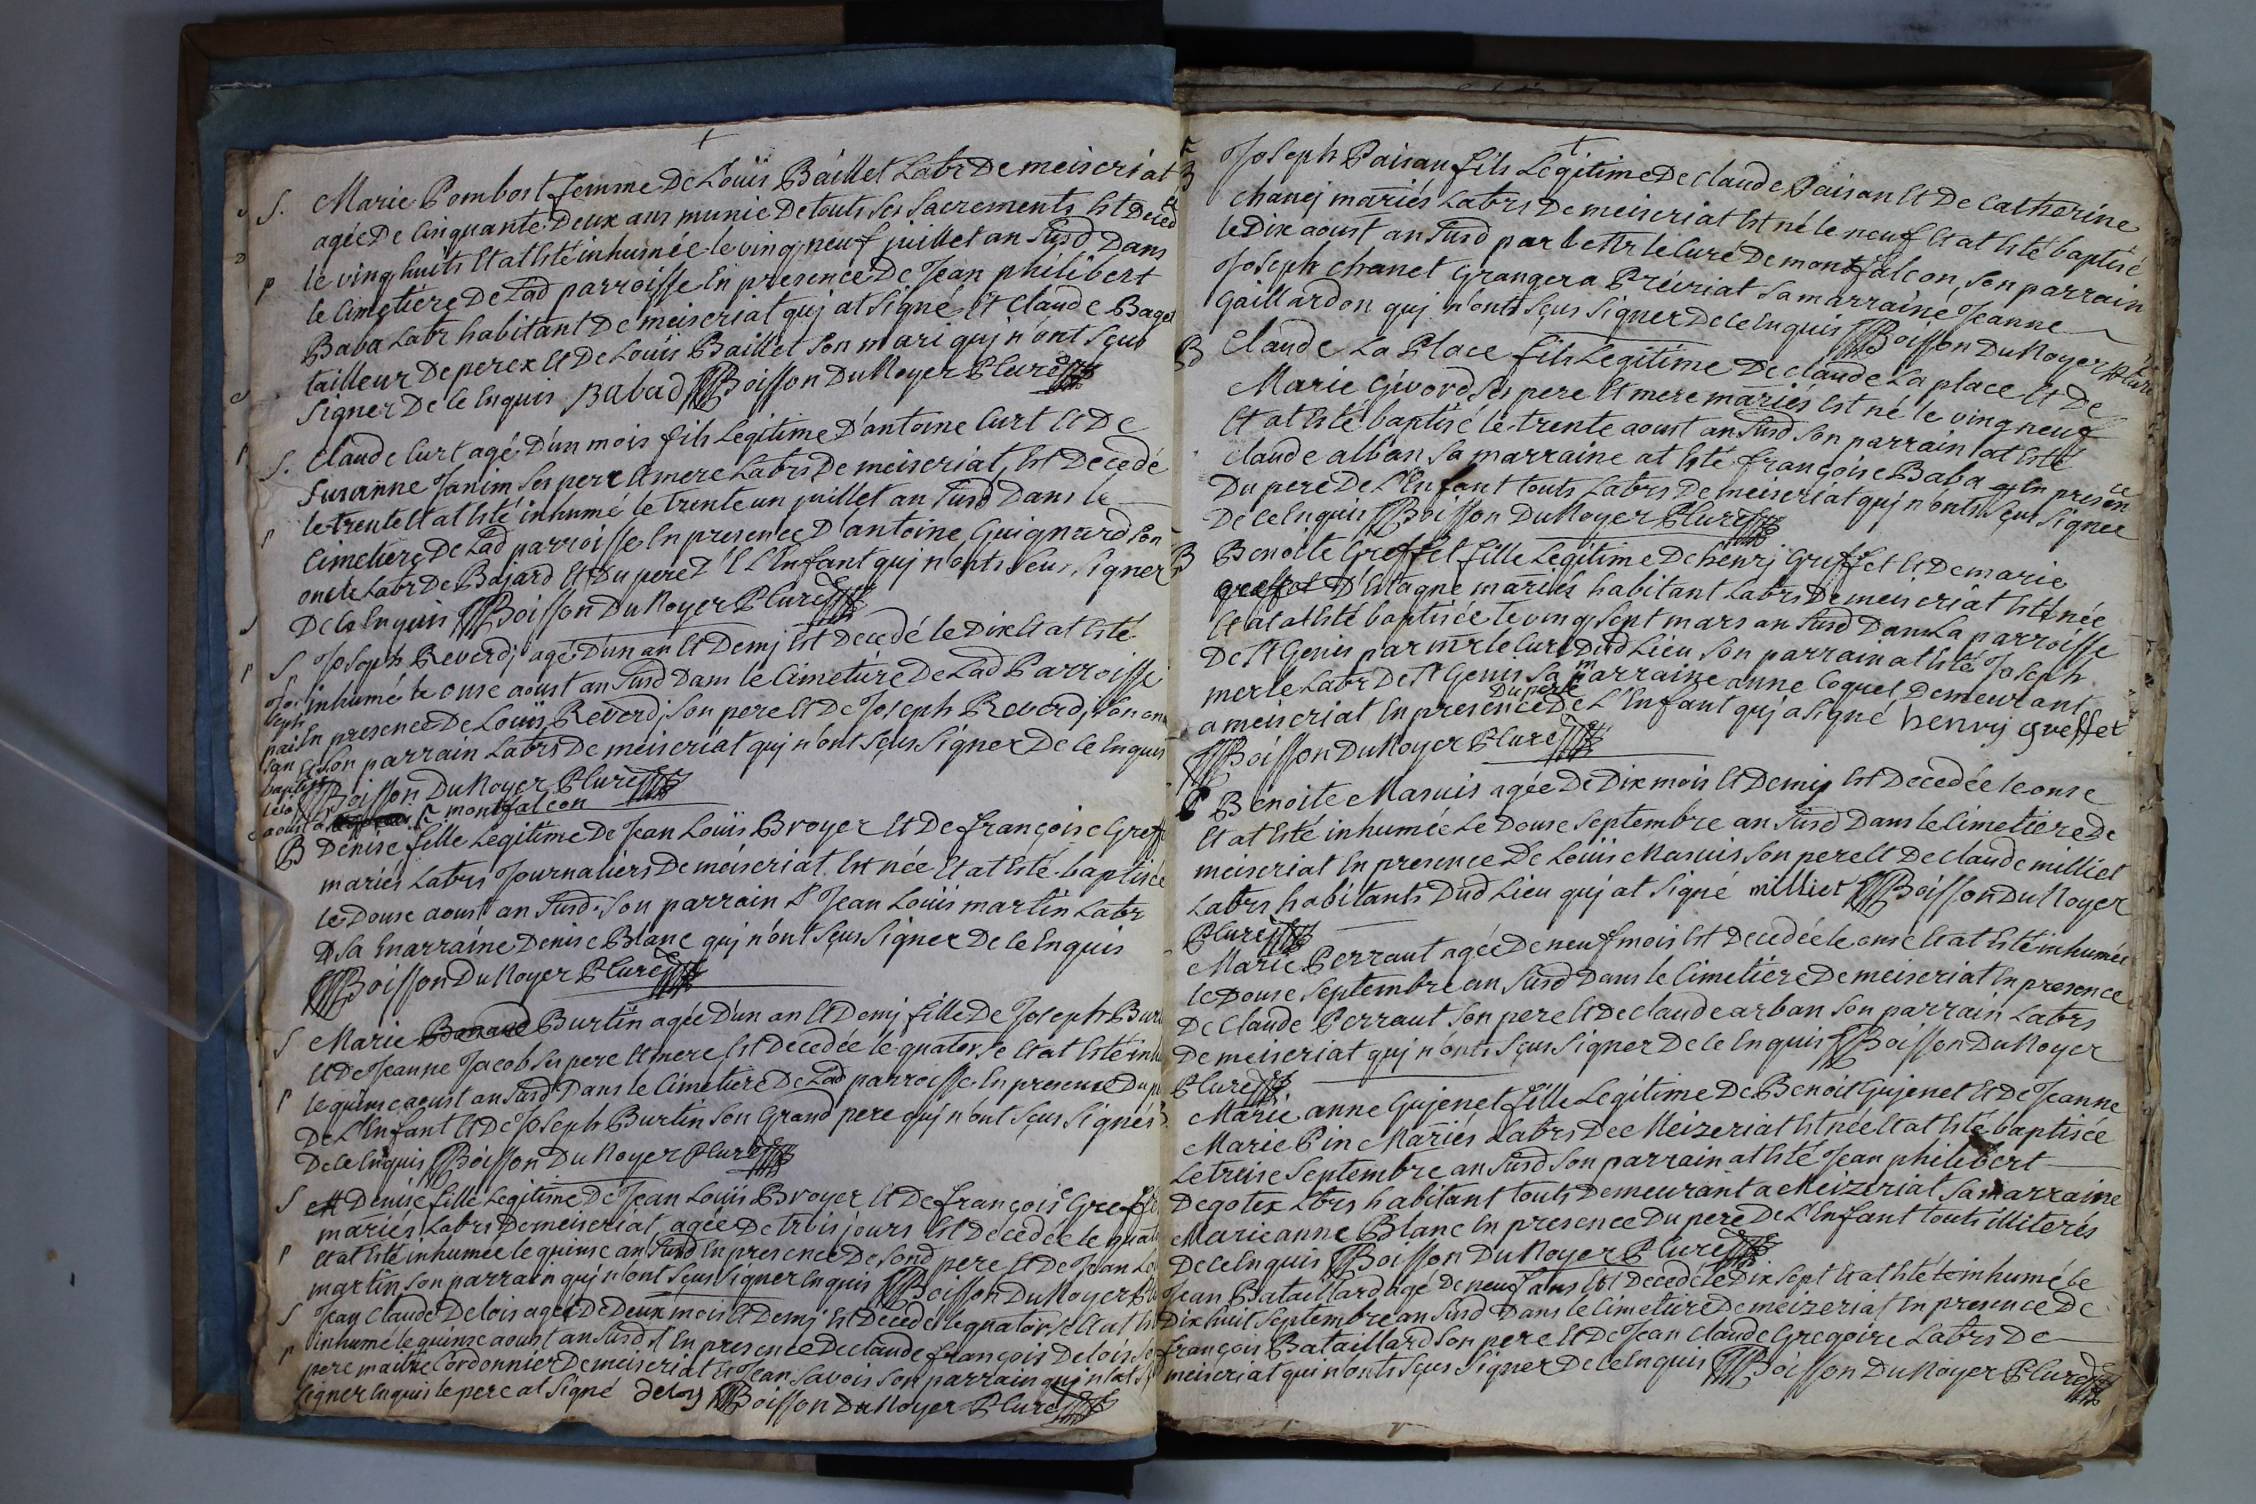 S. Marie Pombost femme De Loüis Báillet Labr De meiseriat
agée De Cinquante Deux ans munie De touts ses Sacrements Est Deced
le vingt huits Et at Esté inhumée le vingt neuf juillet an susd Dans
le Cimetiére De Lad parroisse En presence De Jean philibert
Baba Labr habitant De meiseriat quj at Signé Et Claude Baga
tailleur De perex Et De Loüis Baillet son mari quj n'ont sçus
Signer De ce Enquis Babad Boisson Du Noyer P Curé
S. Claude Curt agé D'un mois fils Legitime D'antoine Curt Et De
Susanne Janim ses pere Et mere Labrs De meiseriat, Est Decedé
le trente Et at Esté inhumé le trente un juillet an susd Dans le
Cimetiere De Lad parroisse En presence D'antoine Guignard son
oncle Labr De Bajard Et Du pere De L'Enfant quj n'onts sçus Signer
De ce Enquis Boisson Du Noyer P Curé
S Joseph Reverdj agé D'un an Et Demj Est Decedé le Dix Et at Esté
inhumé le onse aoust an susd Dans le Cimetiére De Lad Parroisse
En presence De Loüis Reverdj son pere Et De Joseph Reverdj son on
Et son parrain Labrs De meiseriat quj n'ont sçus Signer De ce Enquis
Boisson Du Noyer P Curé
Jo
seph
pai
san
baptisé
le 10
aoust a montfalcon
B Denise fille Legitime De Jean Loüis Broyer Et De françoise Greff
mariés Labrs Journaliers De meiseriat Est née Et at Esté baptisée
le Douse aoust an susd son parrain St Jean Loüis martin Labr
sa marraine Denise Blanc quj n'ont sçus Signer De ce Enquis
Boisson Du Noyer P Curé
S Marie Burtin agée D'un an Et Demj fille De Joseph Bur
Et De Jeanne Jacob ses pere Et mere Est Decedée le quatorse Et at Esté inh
le quinse aoust an susd Dans le Cimetiere De Lad parroisse En presence Du p
De L'Enfant Et De Joseph Burtin son Grand pere quj n'ont sçus Signer
De ce Enquis Boisson Du Noyer P Curé
S Denise fille Legitime De Jean Loüis Broyer Et De françoise Greff
mariés Labrs De meiseriat agée De trois jours Est Decedée le quato
Et at Esté inhumée le quinse an susd En presence De sond pere Et De Jean Lo
martin son parrain quj n'ont sçus Signer Enquis Boisson Du Noyer P
S Jean Claude Delois agé De Deux mois Et Demj Est Decedé le quatorse Et at Es
inhumé le quinse aoust an susd En presence De Claude françois Delois so
pere maitre Cordonnier De meiseriat Et Jean Savois son parrain quj n'at s
Signer Enquis le pere at Signé deloy Boisson Du Noyer P Curé
B Joseph Paisan fils Legitime De Claude Paisan Et De Catherine
Chanej mariés Labrs De meiseriat Est né le neuf Et at Esté baptisé
le Dix aoust an susd par le Curé De montfalcon, son parrain
Joseph Chanet Granger a Préiriat sa marraine Jeanne
Gaillardon quj n'onts sçus Signer De ce Enquis Boisson Du Noyer P Curé
B Claude La Place fils Legitime De Claude La place Et De
Marie Givord ses pere Et mere mariés Est né le vingt neuf
Et at Esté baptisé le trente aoust an susd son parrain at Esté
Claude alban sa marraine at Esté françoise Baba En presence
Du pere De L'Enfant touts Labrs De meiseriat quj n'onts sçus Signer
De ce Enquis Boisson Du Noyer P Curé
B Benoite Greffet fille Legitime De henrj Greffet Et De marie
D'Etagne mariés habitant Labrs De meiseriat Est née
Et at at Esté baptisée le vingt sept mars an susd Dans La parroisse
De St Genis par mr le Curé Dud Lieu son parrain at Esté Joseph
merle Labr De St Genis sa marraine anne Coquet Demeurant
a meiseriat En presence Du pere De L'Enfant quj a Signé henrij greffet
Boisson Du Noyer P Curé
Benoite Masuis agée De Dix mois Et Demj Est Decedée le onse
Et at Esté inhumée Le Douse Septembre an susd Dans le Cimetiere De
meiseriat En presence De Loüis Masuis son pere Et De Claude milliet
Labrs habitants Dud Lieu quj at Signé milliet Boisson Du Noyer
P Curé
Marie Perraut agée De neuf mois Est Decedée le onse Et at Esté inhumée
le Douse Septembre an susd Dans le Cimetiére De meiseriat En presence
De Claude Perraut son pere Et De Claude arban son parrain Labrs
De meiseriat quj n'onts sçus Signer De ce Enquis Boisson Du Noyer
P Curé
Marie anne Gujenet fille Legitime De Benoit Gujenet Et De Jeanne
Marie Pin Mariés Labrs De Meizeriat Est née Et at Esté baptisée
Le treise Septembre an susd son parrain at Esté Jean philibert
Degotex Lbrs habitant touts Demeurant a Meizeriat sa marraine
Marie anne Blanc En presence Du pere De L'Enfant touts illiterés
De ce Enquis Boisson Du Noyer P Curé
Jean Bataillard agé De neuf ans Est Decedé le Dix sept Et at Esté inhumé le
Dix huit Septembre an susd Dans le Cimetiére De meizeriat En presence De
françois Bataillard son pere Et De Jean Claude Gregoire Labrs De
meiseriat qui n'onts sçus Signer De ce Enquis Boisson Du Noyer P Curé